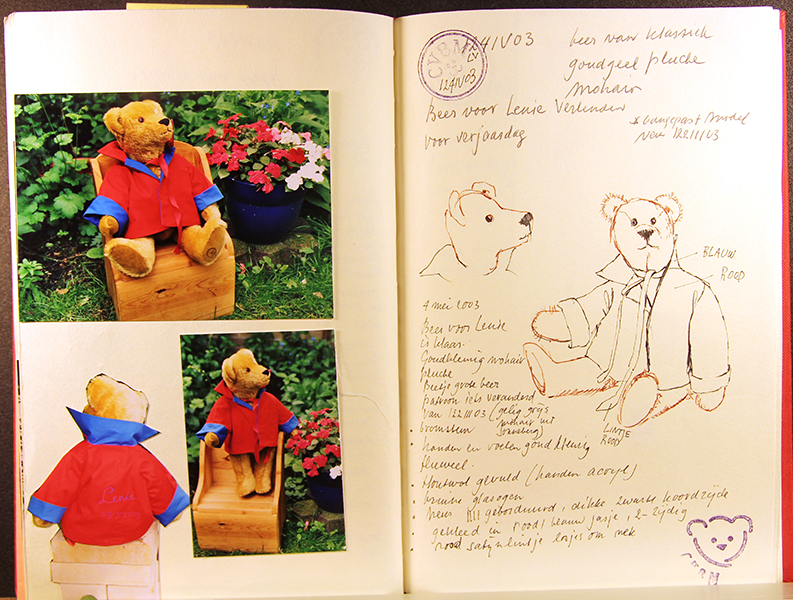 Lenie
CVBM
124IV03
124/IV03
beer van klassiek
goudgeel pluche
mohair
Beer voor Lenie Verlinden
voor verjaardag
* aangepast model
van 122III03
BLAUW
ROOD
LINTJE
ROOD
4 mei 2003
Beer voor Lenie
is klaar.
Goudkleurig mohair
pluche
Beetje grote beer
patroon iets veranderd
van 122III03 (gelig grijs
mohair uit
Sonneberg)
bromstem
handen en voeten goudkleurig
fluweel.
Houtwol gevuld (handen acryl)
bruine glasogen
neus geborduurd, dikke zwarte koordzijde
gekleed in rood/blauw jasje, 2-zijdig
rood satijnlintje losjes om nek